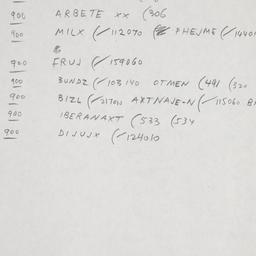 900 ARBETE XX (306
900 MILX (/112070 PHEJME (/1440
900 FRUJ (/159060
900 BUNDZ (/103140 OTMEN (491 (320
900 BIZL (/217011 AXTNAJE-N (/115060 B
900 IBERANAXT (533 (534
900 DIJUJX (/124010